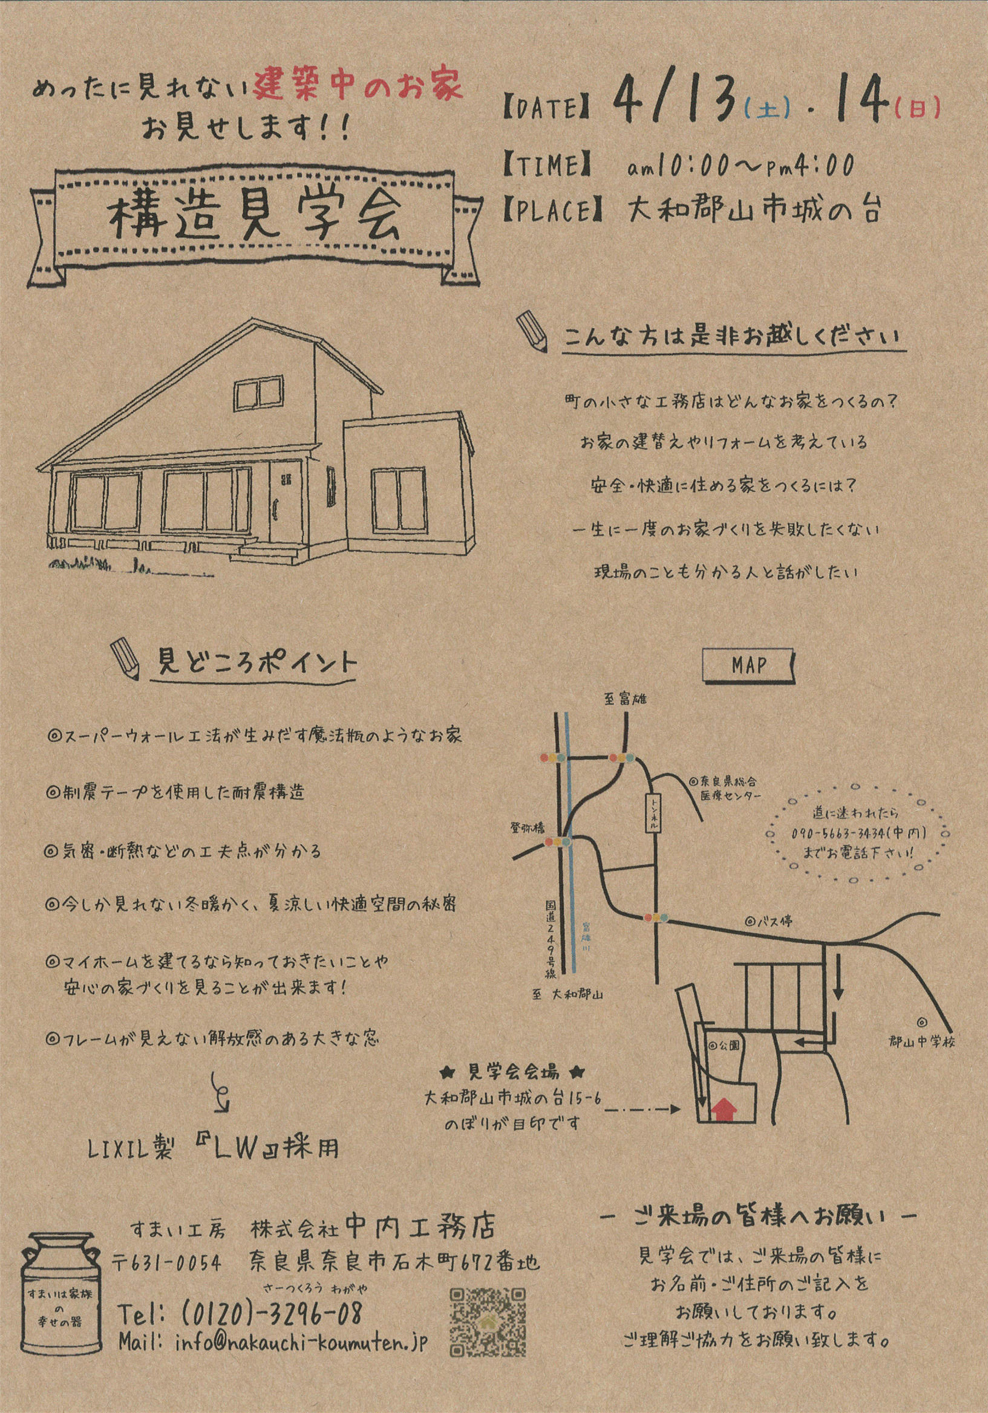 めったに見れない建築中のお家
お見せします！！
構造見学会
【DATE】 4/13(土)・14(日)
【TIME】 am10:00～pm4:00
【PLACE】 大和郡山市城の台
こんな方は是非お越しください
町の小さな工務店はどんなお家をつくるの？
お家の建替えやリフォームを考えている
安全・快適に住める家をつくるには？
一生に一度のお家づくりを失敗したくない
現場のことも分かる人と話がしたい
見どころポイント
◎スーパーウォール工法が生みだす魔法瓶のようなお家
◎制震テープを使用した耐震構造
◎気密・断熱などの工夫点が分かる
◎今しか見れない冬暖かく、夏涼しい快適空間の秘密
◎マイホームを建てるなら知っておきたいことや
安心の家づくりを見ることが出来ます！
◎フレームが見えない解放感のある大きな窓
LIXIL製 『LW』採用
MAP
至富雄
◎奈良県総合
医療センター
トンネル
登弥橋
道に迷われたら
090-5663-3434(中内)
までお電話下さい！
国道249号線
富雄川
◎バス停
至 大和郡山
◎
郡山中学校
◎公園
★ 見学会会場 ★
大和郡山市城の台15-6
のぼりが目印です
すまいは家族
の
幸せの器
すまい工房 株式会社中内工務店
〒631-0054 奈良県奈良市石木町672番地
さーつくろう わがや
Tel: (0120)-3296-08
Mail: info@nakauchi-koumuten.jp
－ ご来場の皆様へお願い －
見学会では、ご来場の皆様に
お名前・ご住所のご記入を
お願いしております。
ご理解ご協力をお願い致します。